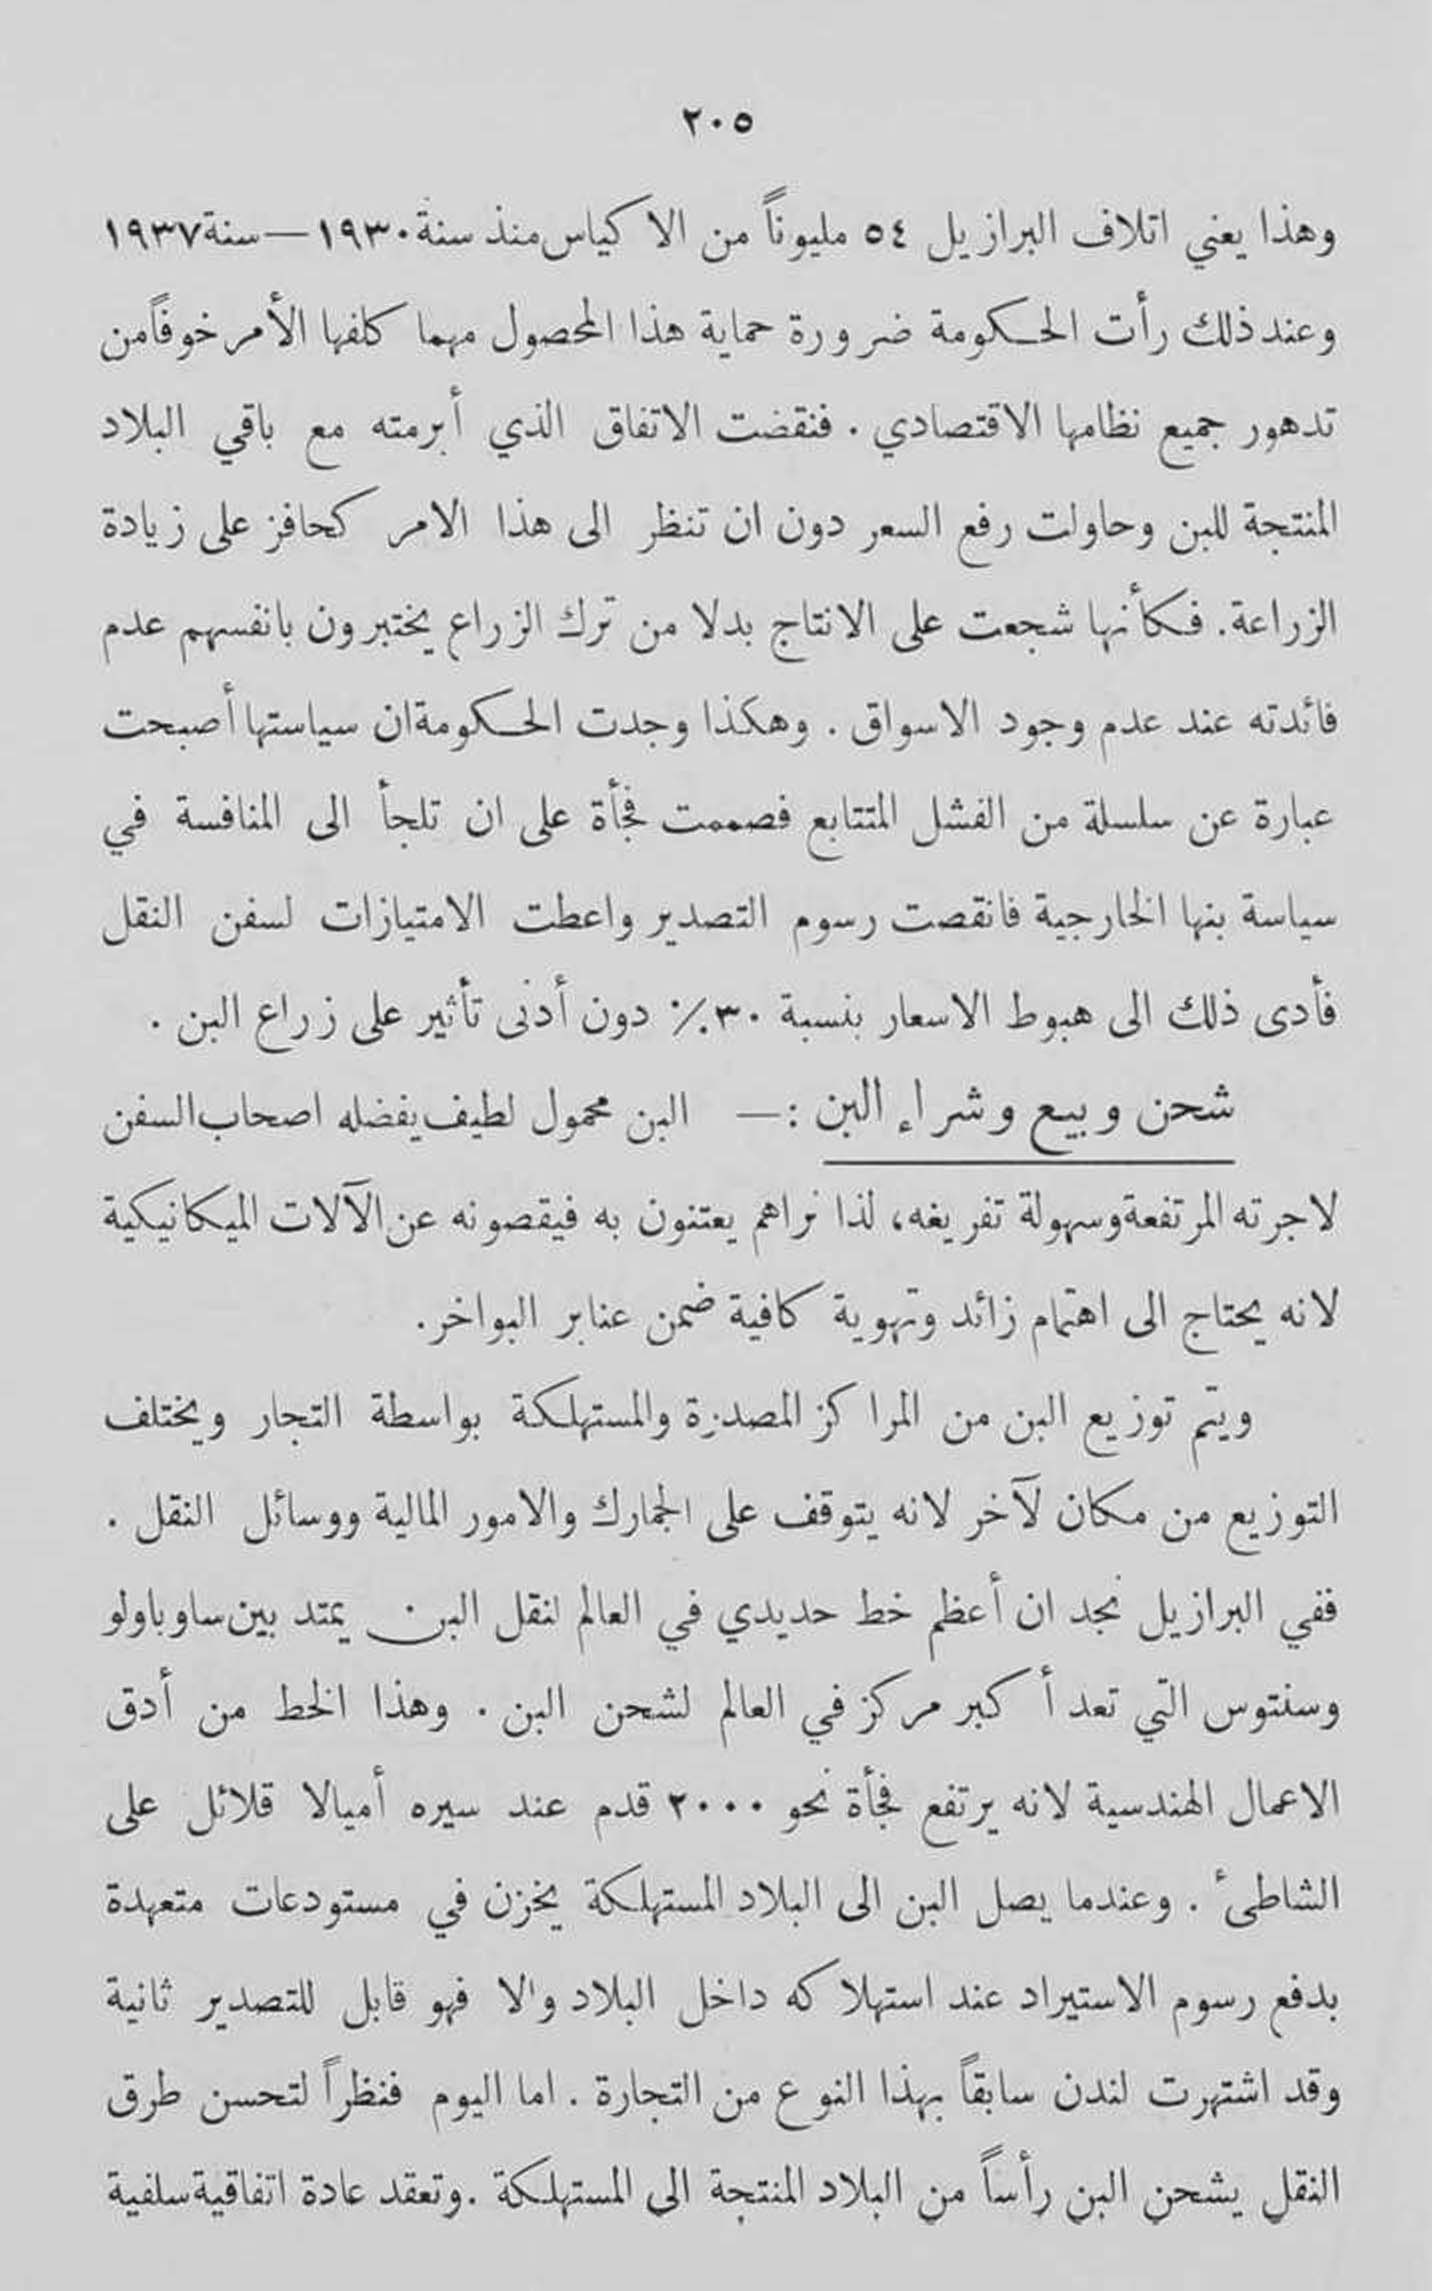 ٢٠٥
وهذا يعني اتلاف البرازيل ٥٤ مليوناً من الاكياس منذ سنة ١٩٣٠—سنة ١٩٣٧
وعند ذلك رأت الحكومة ضرورة حماية هذا المحصول مهما كلفها الأمر خوفاً من
تدهور جميع نظامها الاقتصادي . فنقضت الاتفاق الذي أبرمته مع باقي البلاد
المنتجة للبن وحاولت رفع السعر دون ان تنظر الى هذا الامر كحافز على زيادة
الزراعة. فكأنها شجعت على الانتاج بدلا من ترك الزراع يختبرون بانفسهم عدم
فائدته عند عدم وجود الاسواق . وهكذا وجدت الحكومة ان سياستها أصبحت
عبارة عن سلسلة من الفشل المتتابع فصممت فجأة على ان تلجأ الى المنافسة في
سياسة بنها الخارجية فانقصت رسوم التصدير واعطت الامتيازات لسفن النقل
فأدى ذلك الى هبوط الاسعار بنسبة ٣٠٪ دون أدنى تأثير على زراع البن .
شحن وبيع وشراء البن :— البن محمول لطيف يفضله اصحاب السفن
لاجرته المرتفعة وسهولة تفريغه، لذا نراهم يعتنون به فيقصونه عن الآلات الميكانيكية
لانه يحتاج الى اهتمام زائد وتهوية كافية ضمن عنابر البواخر.
ويتم توزيع البن من المراكز المصدرة والمستهلكة بواسطة التجار ويختلف
التوزيع من مكان لآخر لانه يتوقف على الجمارك والامور المالية ووسائل النقل .
ففي البرازيل نجد ان أعظم خط حديدي في العالم لنقل البن يمتد بين ساوباولو
وسنتوس التي تعد أكبر مركز في العالم لشحن البن . وهذا الخط من أدق
الاعمال الهندسية لانه يرتفع فجأة نحو ٢٠٠٠ قدم عند سيره أميالا قلائل على
الشاطئ . وعندما يصل البن الى البلاد المستهلكة يخزن في مستودعات متعهدة
بدفع رسوم الاستيراد عند استهلاكه داخل البلاد والا فهو قابل للتصدير ثانية
وقد اشتهرت لندن سابقاً بهذا النوع من التجارة . اما اليوم فنظراً لتحسن طرق
النقل يشحن البن رأساً من البلاد المنتجة الى المستهلكة .وتعقد عادة اتفاقية سلفية